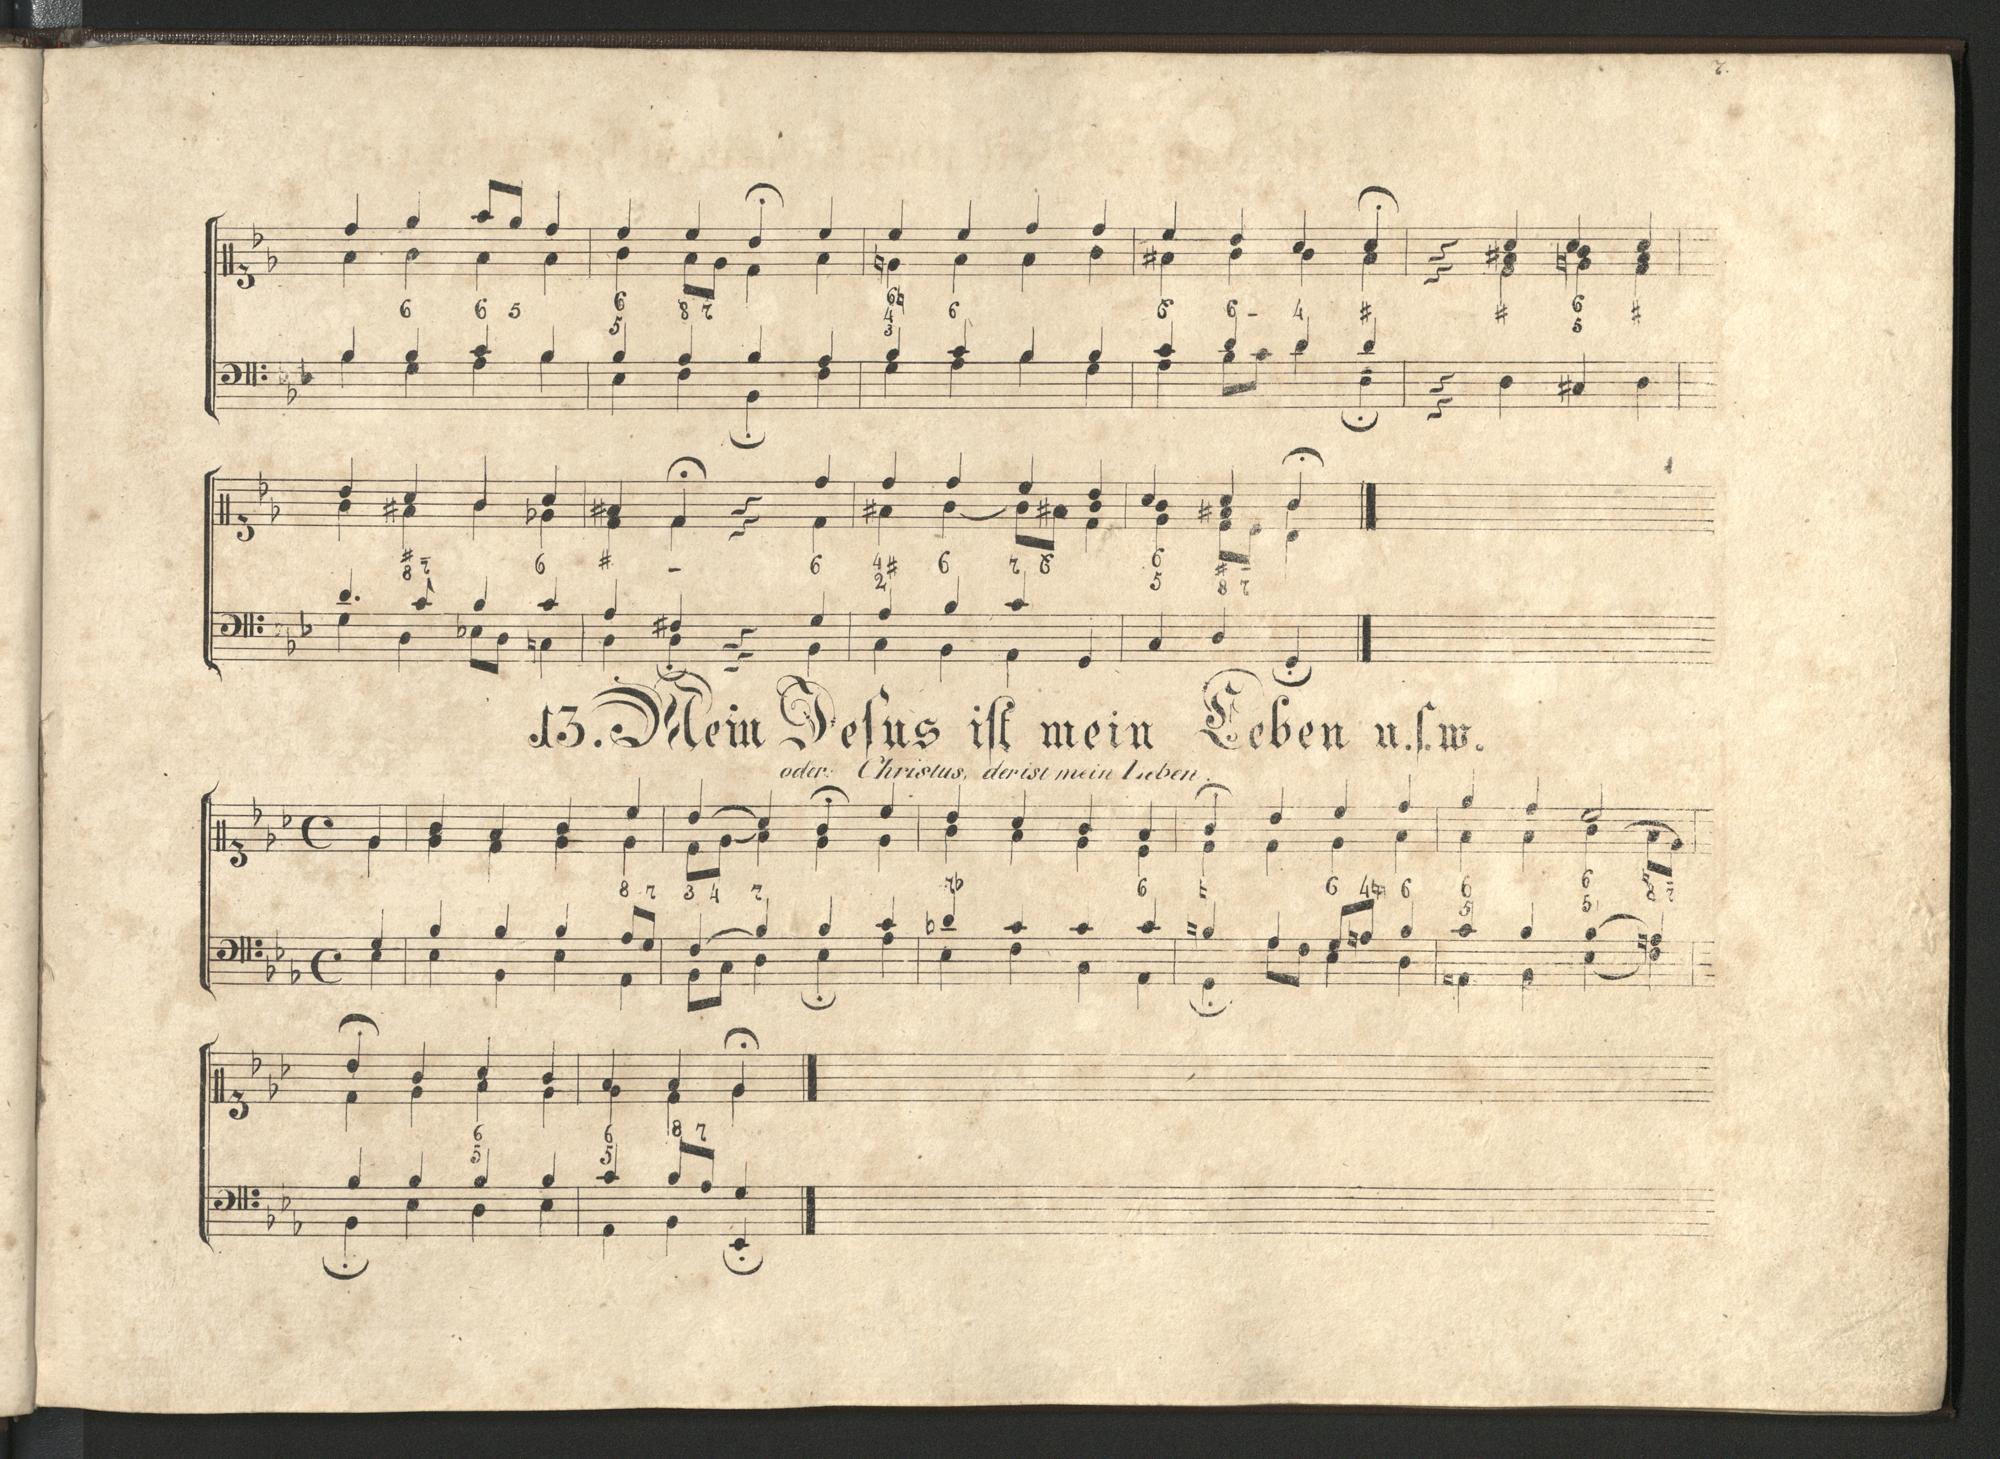 7.
6 6 5 6 5 8 7 6♮ 4 3 6 6 6 - 4 # # 6 5 #
# 8 7 6 # - 6 4# 2 6 7 6 6 5 # 8 7
13. Mein Jeſus iſt mein Leben u.ſ.w.
oder: Christus, der ist mein Leben.
8 7 3 4 7 7♭ 6 ♮ 6 4♮ 6 6 5 6 5 8 7
6 5 6 5 8 7